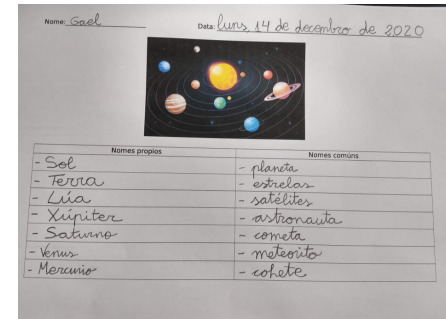 Nome: Gael Data: luns, 14 de decembro de 2020
Nomes propios Nomes comúns
- Sol - planeta
- Terra - estrelas
- Lúa - satélites
- Xúpiter - astronauta
- Saturno - cometa
- Venus - meteorito
- Mercurio - cohete